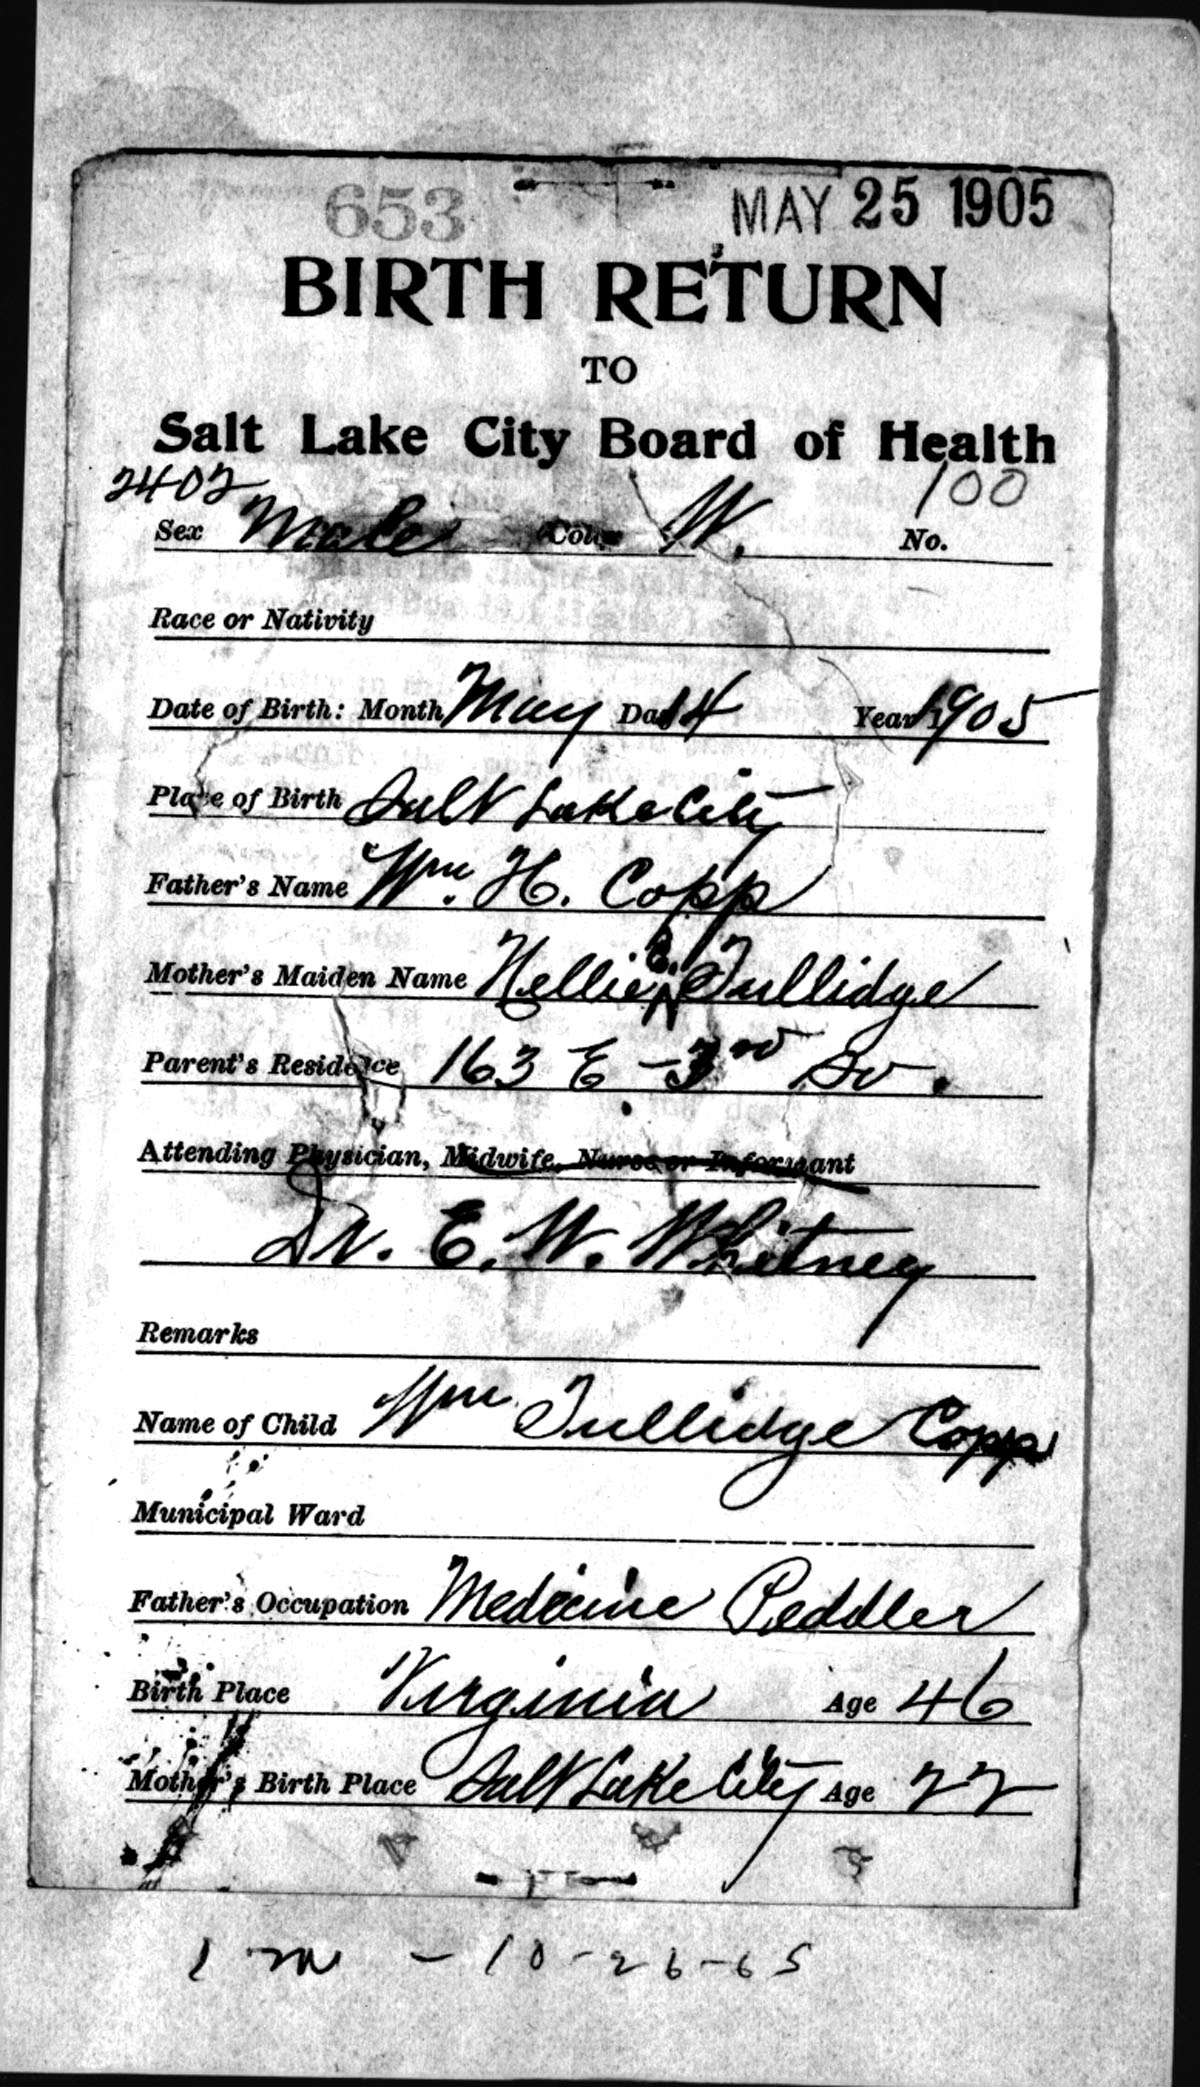 653 MAY 25 1905
BIRTH RETURN
TO
Salt Lake City Board of Health
2402 100
Sex Male Color W. No.
Race or Nativity
Date of Birth: Month May Day 14 Year 1905
Place of Birth Salt Lake City
Father's Name Wm. H. Copp
Mother's Maiden Name Nellie B. Tullidge
Parent's Residence 163 E - 3rd So.
Attending Physician, Midwife, Nurse or Informant
Dr. E. W. Whitney
Remarks
Name of Child Wm Tullidge Copp
Municipal Ward
Father's Occupation Medicine Peddler
Birth Place Virginia Age 46
Mother's Birth Place Salt Lake City Age 22
10-26-65